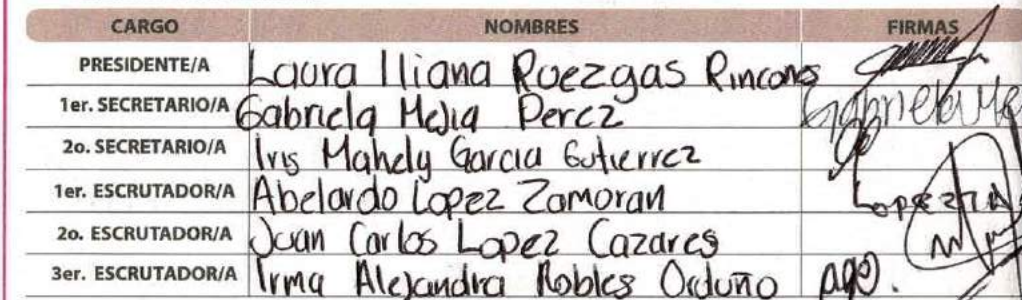 CARGO NOMBRES FIRMAS
PRESIDENTE/A Laura Iliana Ruezgas Rincones
1er. SECRETARIO/A Gabriela Mejia Perez Gabriela Me
2o. SECRETARIO/A Iris Mahely Garcia Gutierrez
1er. ESCRUTADOR/A Abelardo Lopez Zamoran Lopez
2o. ESCRUTADOR/A Juan Carlos Lopez Cazares
3er. ESCRUTADOR/A Irma Alejandra Robles Orduño